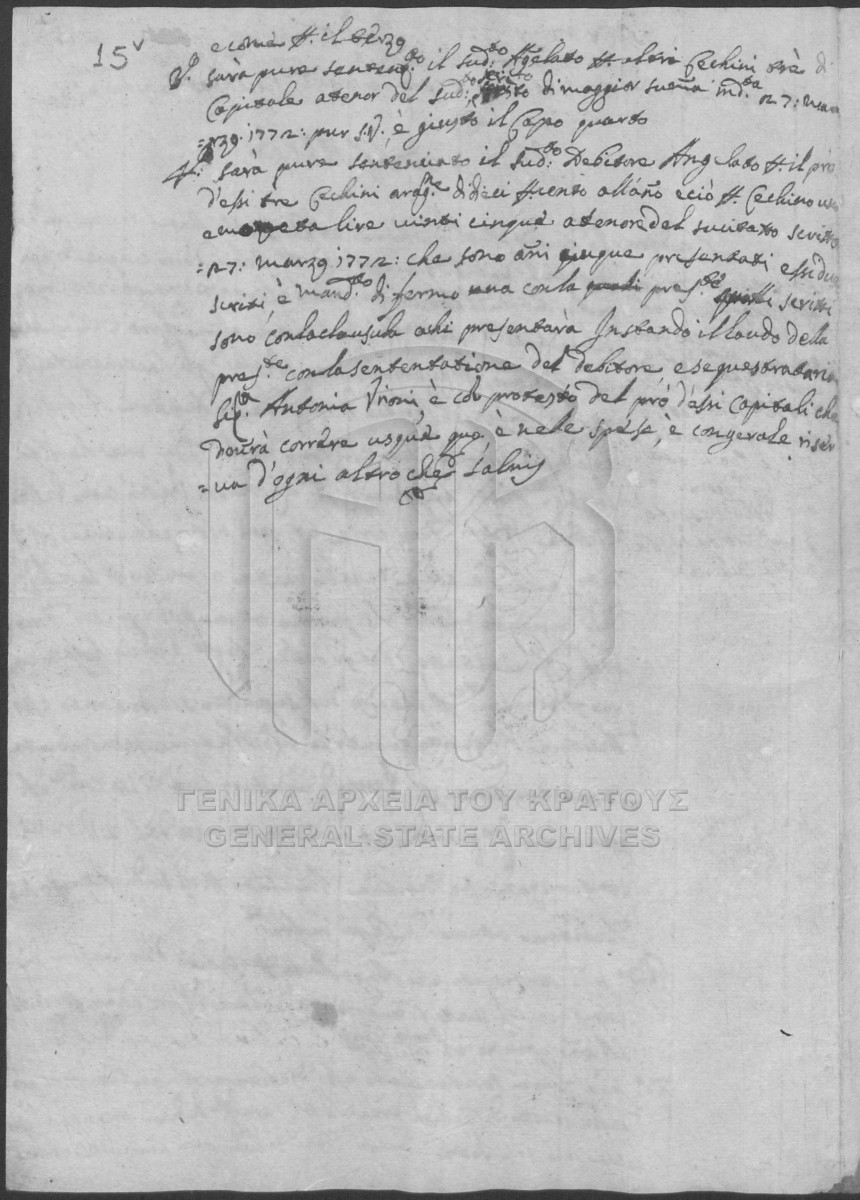 15v
e come P. il terzo
3º. sarà pure sentenz.to il sud.to Angelato P. altri Cechini trè di
Capitale a tenor del sud.to scritto di maggior summa ind.ta 27: mar
=zo. 1772: pur s.V. è giusto il Capo quarto
4º. Sarà pure sentenciato il sud.to Debitore Angelato P. il prò
d'essi tre Cechini a rag.e di dieci P. cento all'año e ciò P. Cechino uno
e lire vinti cinque a tenore del sucitato scritto
=27: marzo 1772: che sono añi cinque presentati essi due
scritti, è mand.to di fermo con la pres.te scritti
sono, con la clausula a chi presentarà Instando il laudo dela
pres.te con la sentenciatione del debitore e sequestrataria
Sig.ra Antonia Vrioni, è col protesto del prò d'essi Capitali che
dourà correre usquè quo, è nele spese, è con gerale riser
=ua d'ogni altro che Salvis
ΓΕΝΙΚΑ ΑΡΧΕΙΑ ΤΟΥ ΚΡΑΤΟΥΣ
GENERAL STATE ARCHIVES